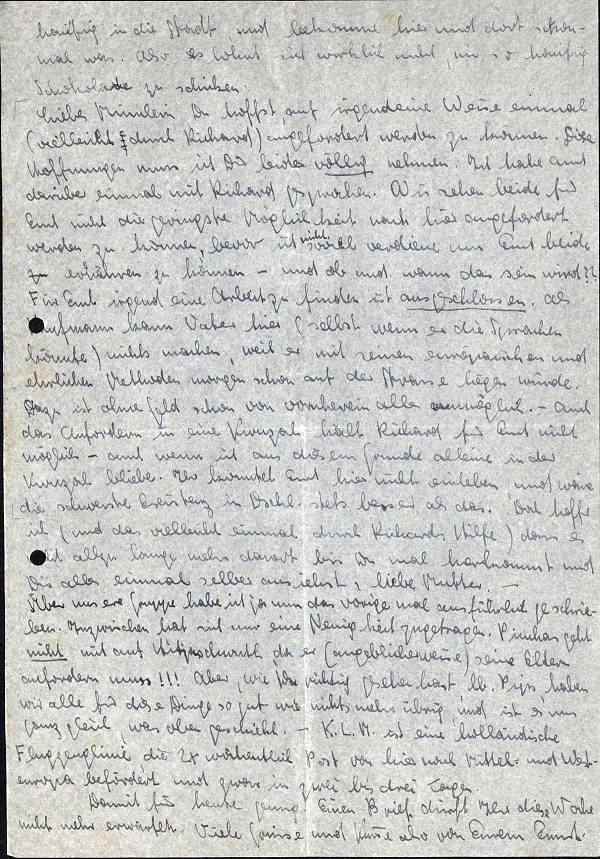 häufig in die Stadt und bekomme hier und dort schon-
mal was. Also es lohnt sich wirklich nicht, mir so häufig
Schokolade zu schicken.
Liebes Du hoffst auf irgendeine Weise einmal
(vielleicht durch Richard) angefordert werden zu können. Diese
Hoffnungen muss ich Dir leider völlig nehmen. Ich habe auch
darüber einmal mit Richard gesprochen. Wir sehen beide für
Euch nicht die geringste Möglichkeit nach hier angefordert
werden zu können, bevor ich nicht soviel verdiene um Euch beide
ernähren zu können – und ob und wann das sein wird??
Für Euch irgend eine Arbeit zu finden ist ausgeschlossen. Als
aufmann kann Vater hier (selbst wenn er die Sprachen
könnte) nichts machen, weil er mit seinen europäischen und
ehrlichen Methoden morgen schon auf der Strasse liegen würde.
Dazu ist ohne Geld schon von vornherein alles unmöglich. – Auch
das Anfordern in eine Kwuzah hält Richard für Euch nicht
möglich – auch wenn ich aus diesem Grunde alleine in der
Kwuzah bliebe. Ihr könntet Euch hier nicht einleben und wäre
die schwerste Existenz in Dschl. stets besser als das. Doch hoffe
ich (und das vielleicht einmal durch Richards Hilfe) dass es
allzu lange mehr dauert bis Du mal herkommst und
Dir alles einmal selber ansiehst, liebe Mutter. —
Über unsere Gruppe habe ich ja nun das vorige mal ausführlich geschrie-
ben. Inzwischen hat sich nur eine Neuigkeit zugetragen. Pinchas geht
nicht mit auf da er (angeblicherweise) seine Eltern
anfordern muss!!! Aber, wie Du richtig gesehen hast, lb. haben
wir alle für diese Dinge so gut wie nichts mehr übrig und ist es uns
ganz gleich, was oben geschieht. – K.L.M. ist eine holländische
Fluglinie die 2x wöchentlich Post von hier nach Mittel- und West-
europa befördert und zwar in zwei bis drei Tagen.
Damit für heute genug. Einen Brief dürft Ihr diese Woche
nicht mehr erwarten. Viele Grüsse und Küsse also von Eurem